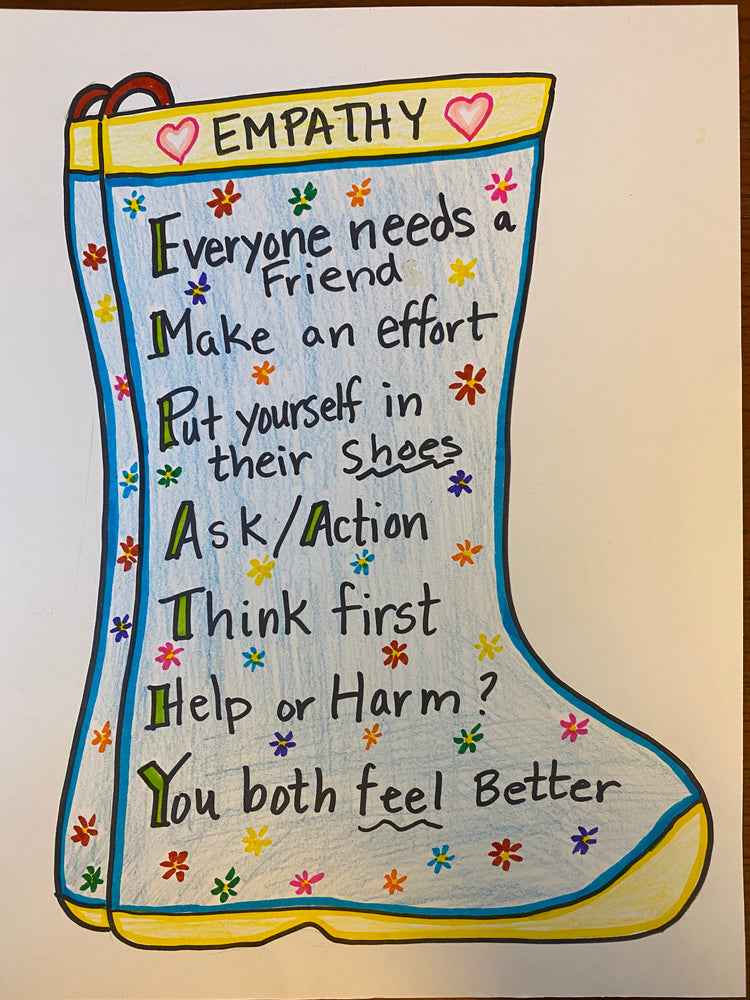 EMPATHY
Everyone needs a
Friend
Make an effort
Put yourself in
their Shoes
Ask/Action
Think first
Help or Harm?
You both feel Better